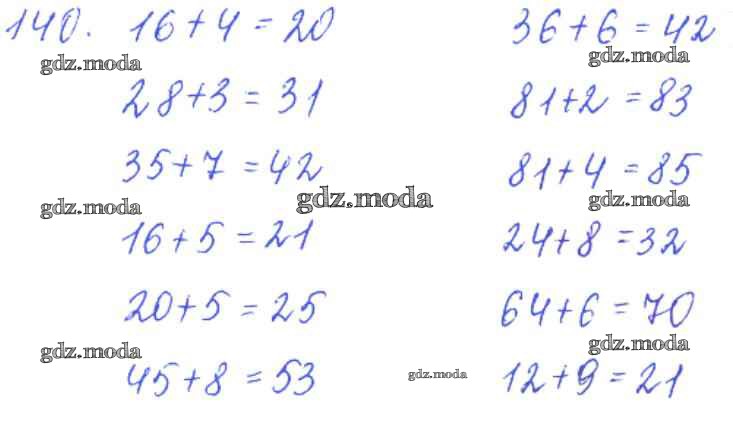 140. 16+4=20 36+6=42
gdz.moda gdz.moda
28+3=31 81+2=83
35+7=42 81+4=85
gdz.moda gdz.moda gdz.moda
16+5=21 24+8=32
20+5=25 64+6=70
gdz.moda gdz.moda
45+8=53 gdz.moda 12+9=21